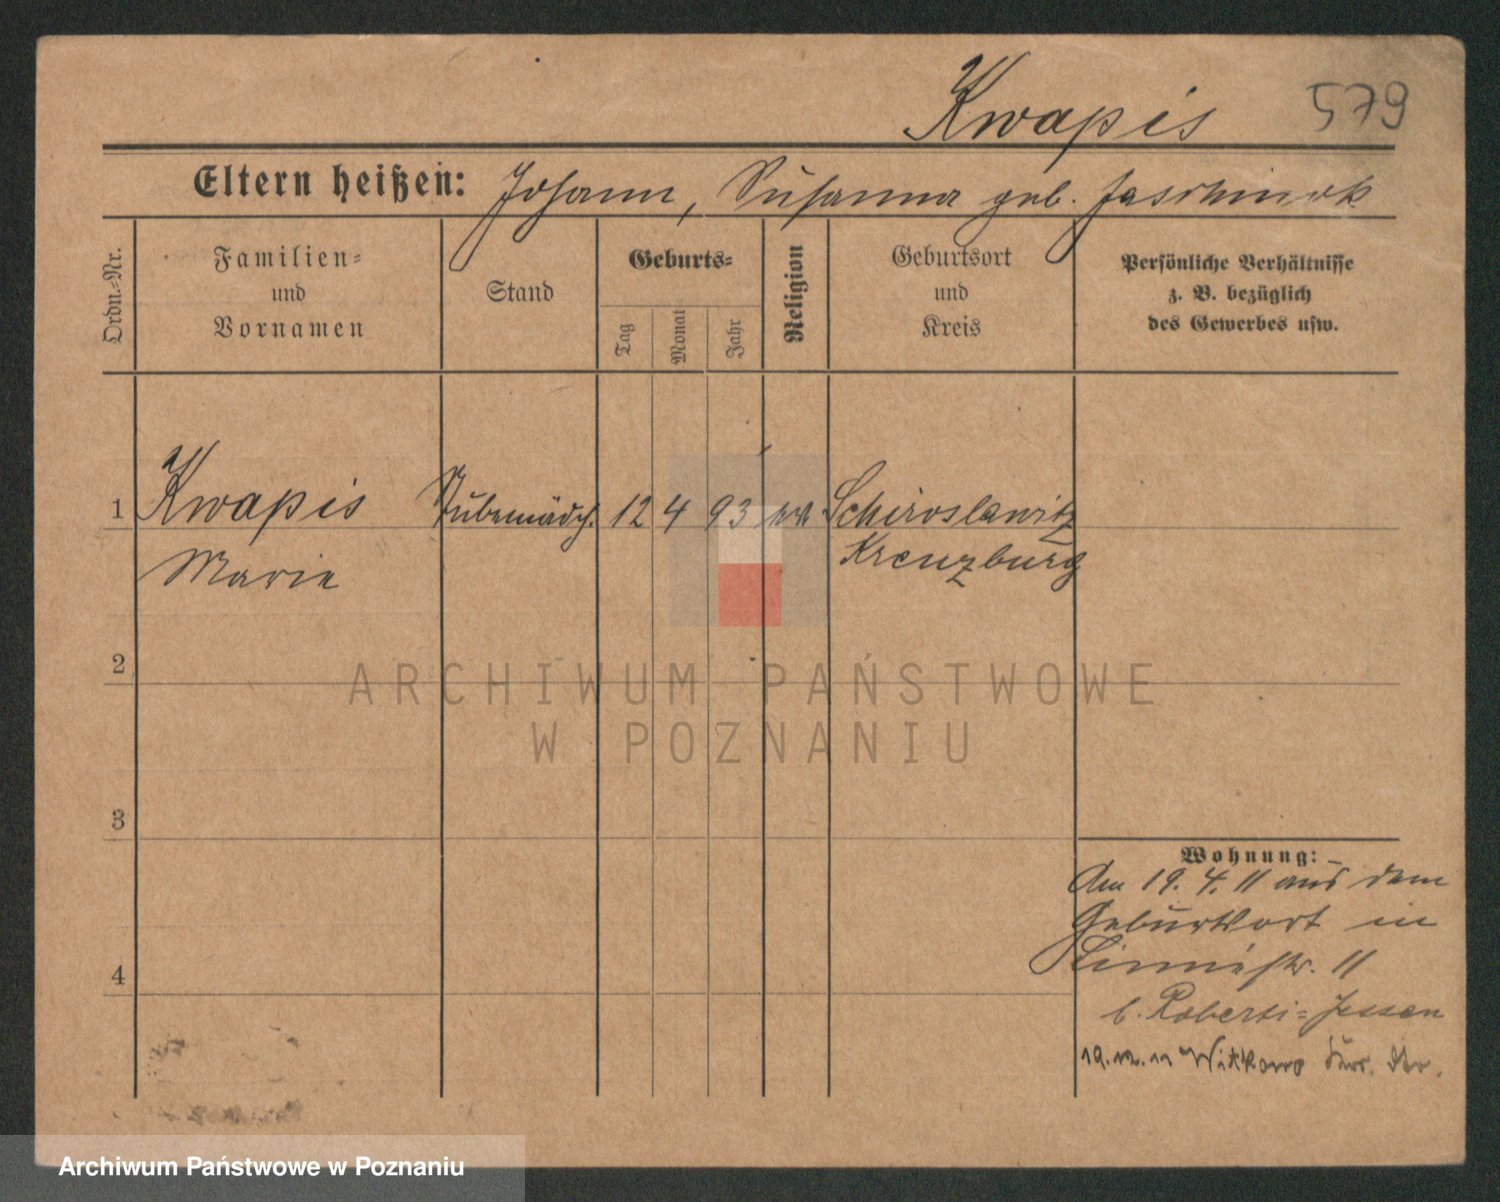 Kwapis 579
Eltern heißen: Johann, Susanna geb. Jaschinek
Ordn.-Nr.
Familien- und Vornamen
Stand
Geburts-
Tag
Monat
Jahr
Religion
Geburtsort und Kreis
Persönliche Verhältnisse
z. B. bezüglich
des Gewerbes usw.
1 Kwapis Stubenmädch. 12 4 93 Schiroslawitz
Marie Kreuzburg
2
3
4
Wohnung:
Am 19. 4. 11 aus dem
Geburtsort in
Linnéstr. 11
b. Roberti-Jessen
19.12.11 Witkowo
ARCHIWUM PAŃSTWOWE
W POZNANIU
Archiwum Państwowe w Poznaniu